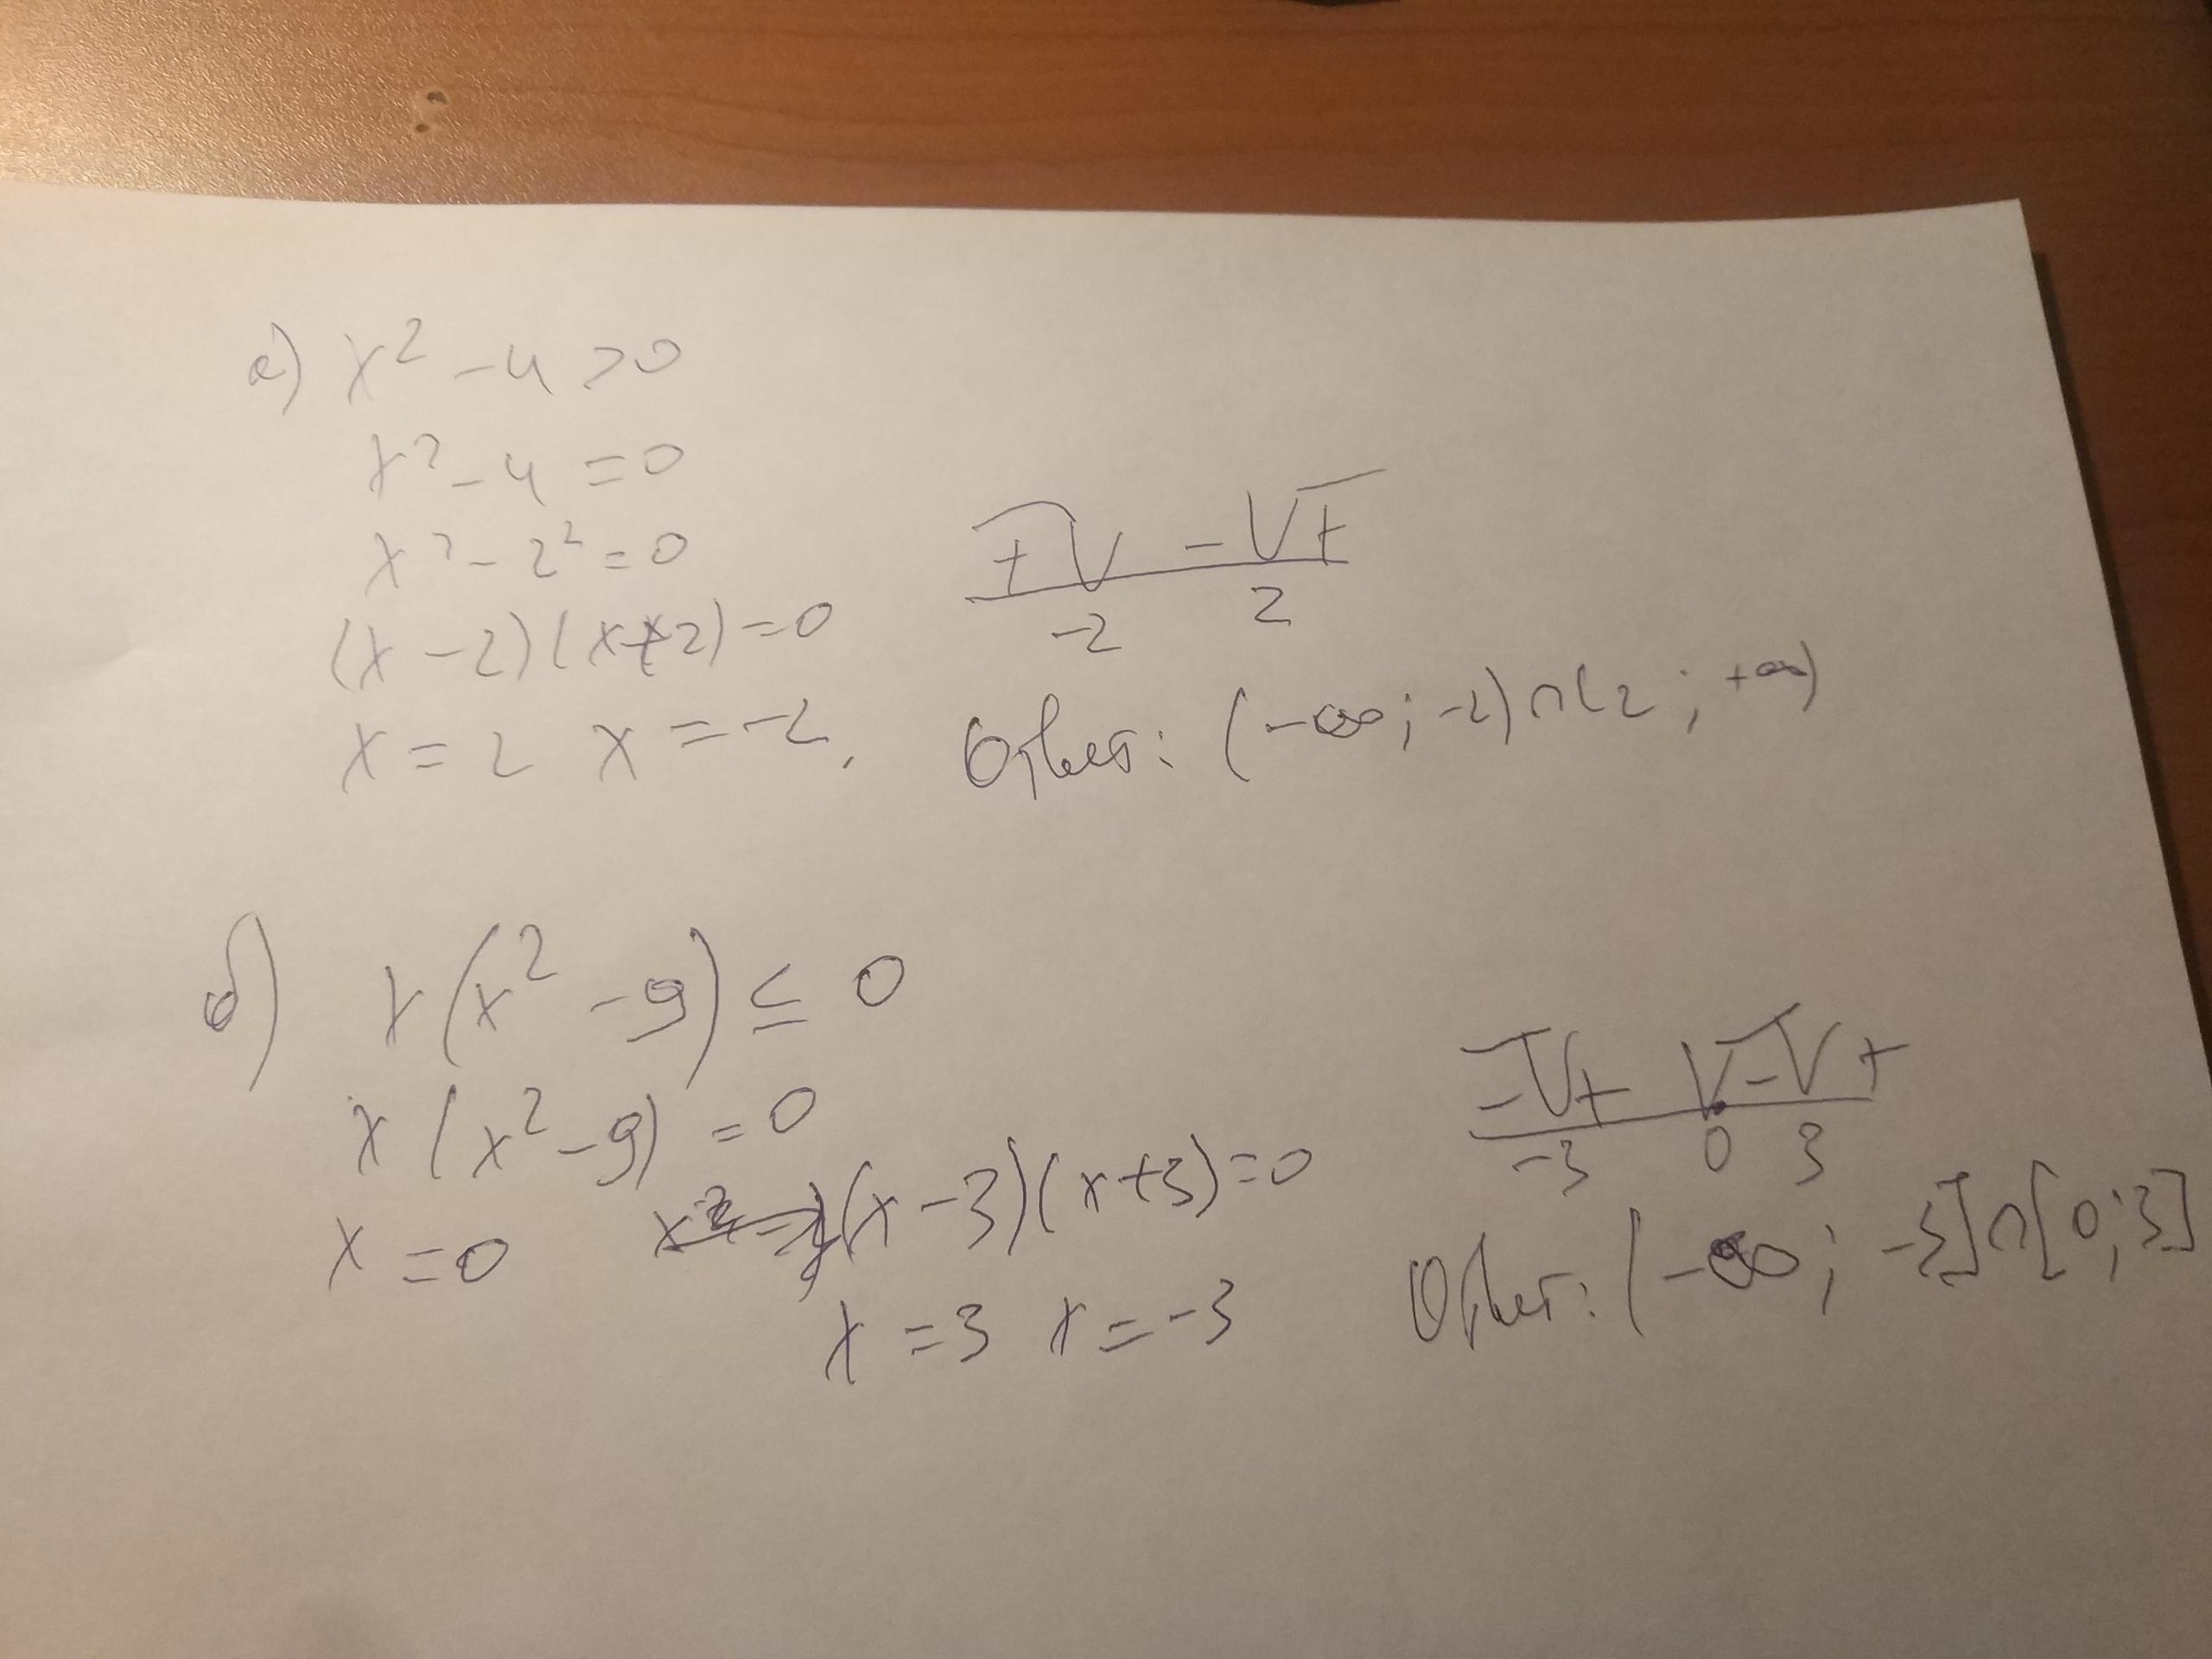 а) x² - 4 > 0
x² - 4 = 0
x² - 2² = 0
(x - 2)(x + 2) = 0
x = 2 x = -2.
+ - +
-2 2
Ответ: (-∞; -2) ∩ (2; +∞)
б) x(x² - 9) ≤ 0
x(x² - 9) = 0
x = 0 (x - 3)(x + 3) = 0
x = 3 x = -3
- + - +
-3 0 3
Ответ: (-∞; -3] ∩ [0; 3]